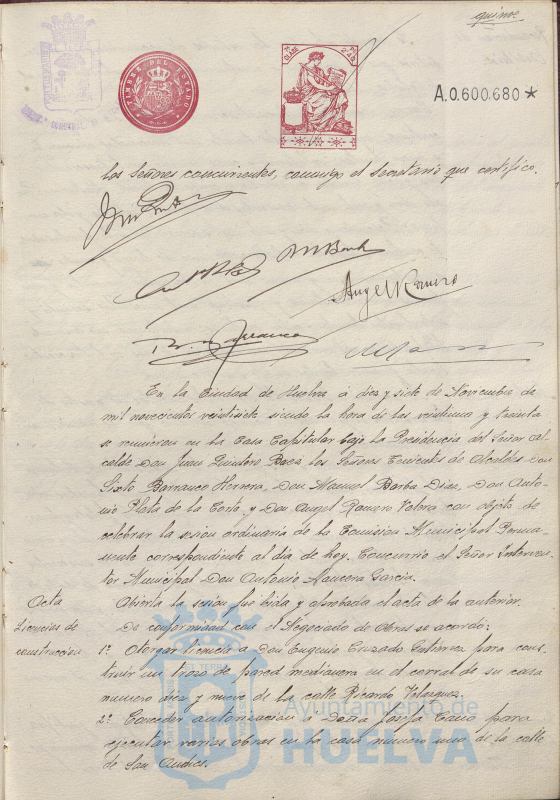 quince
TIMBRE DEL ESTADO
A.0.600.680 *
los Señores concurrentes, conmigo el Secretario que certifico.
Angel Romero
En la Ciudad de Huelva á diez y siete de Noviembre de
mil novecientos veintisiete siendo la hora de las veintiuna y treinta
se reunieron en la Casa Capitular bajo la Presidencia del Señor Al
calde Don Juan Quintero Baez los Señores Tenientes de Alcalde Don
Sixto Barranco Herrera, Don Manuel Barba Diaz, Don Anto-
nio Plata de la Corte y Don Angel Romero Valero con objeto de
celebrar la sesion ordinaria de la Comision Municipal Perma-
nente correspondiente al dia de hoy. Concurrió el Señor Interven-
tor Municipal Don Antonio García.
Acta
Abierta la sesion fue leida y aprobada el acta de la anterior.
Licencias de
construccion
De conformidad con el Negociado de Obras se acordó:
1º. Otorgar licencia a Don Eugenio Cruzado Gutiérrez para cons-
truir un trozo de pared medianera en el corral de su casa
numero diez y nueve de la calle Ricardo Velazquez.
2º. Conceder autorización á Doña Josefa para
ejecutar varias obras en la casa numero uno de la calle
de San Andres.
Ayuntamiento de
HUELVA